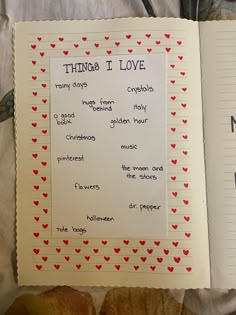 THINGS I LOVE
rainy days
crystals
hugs from
behind
Italy
a good
book
golden hour
Christmas
music
pinterest
the moon and
the stars
flowers
dr. pepper
halloween
tote bags